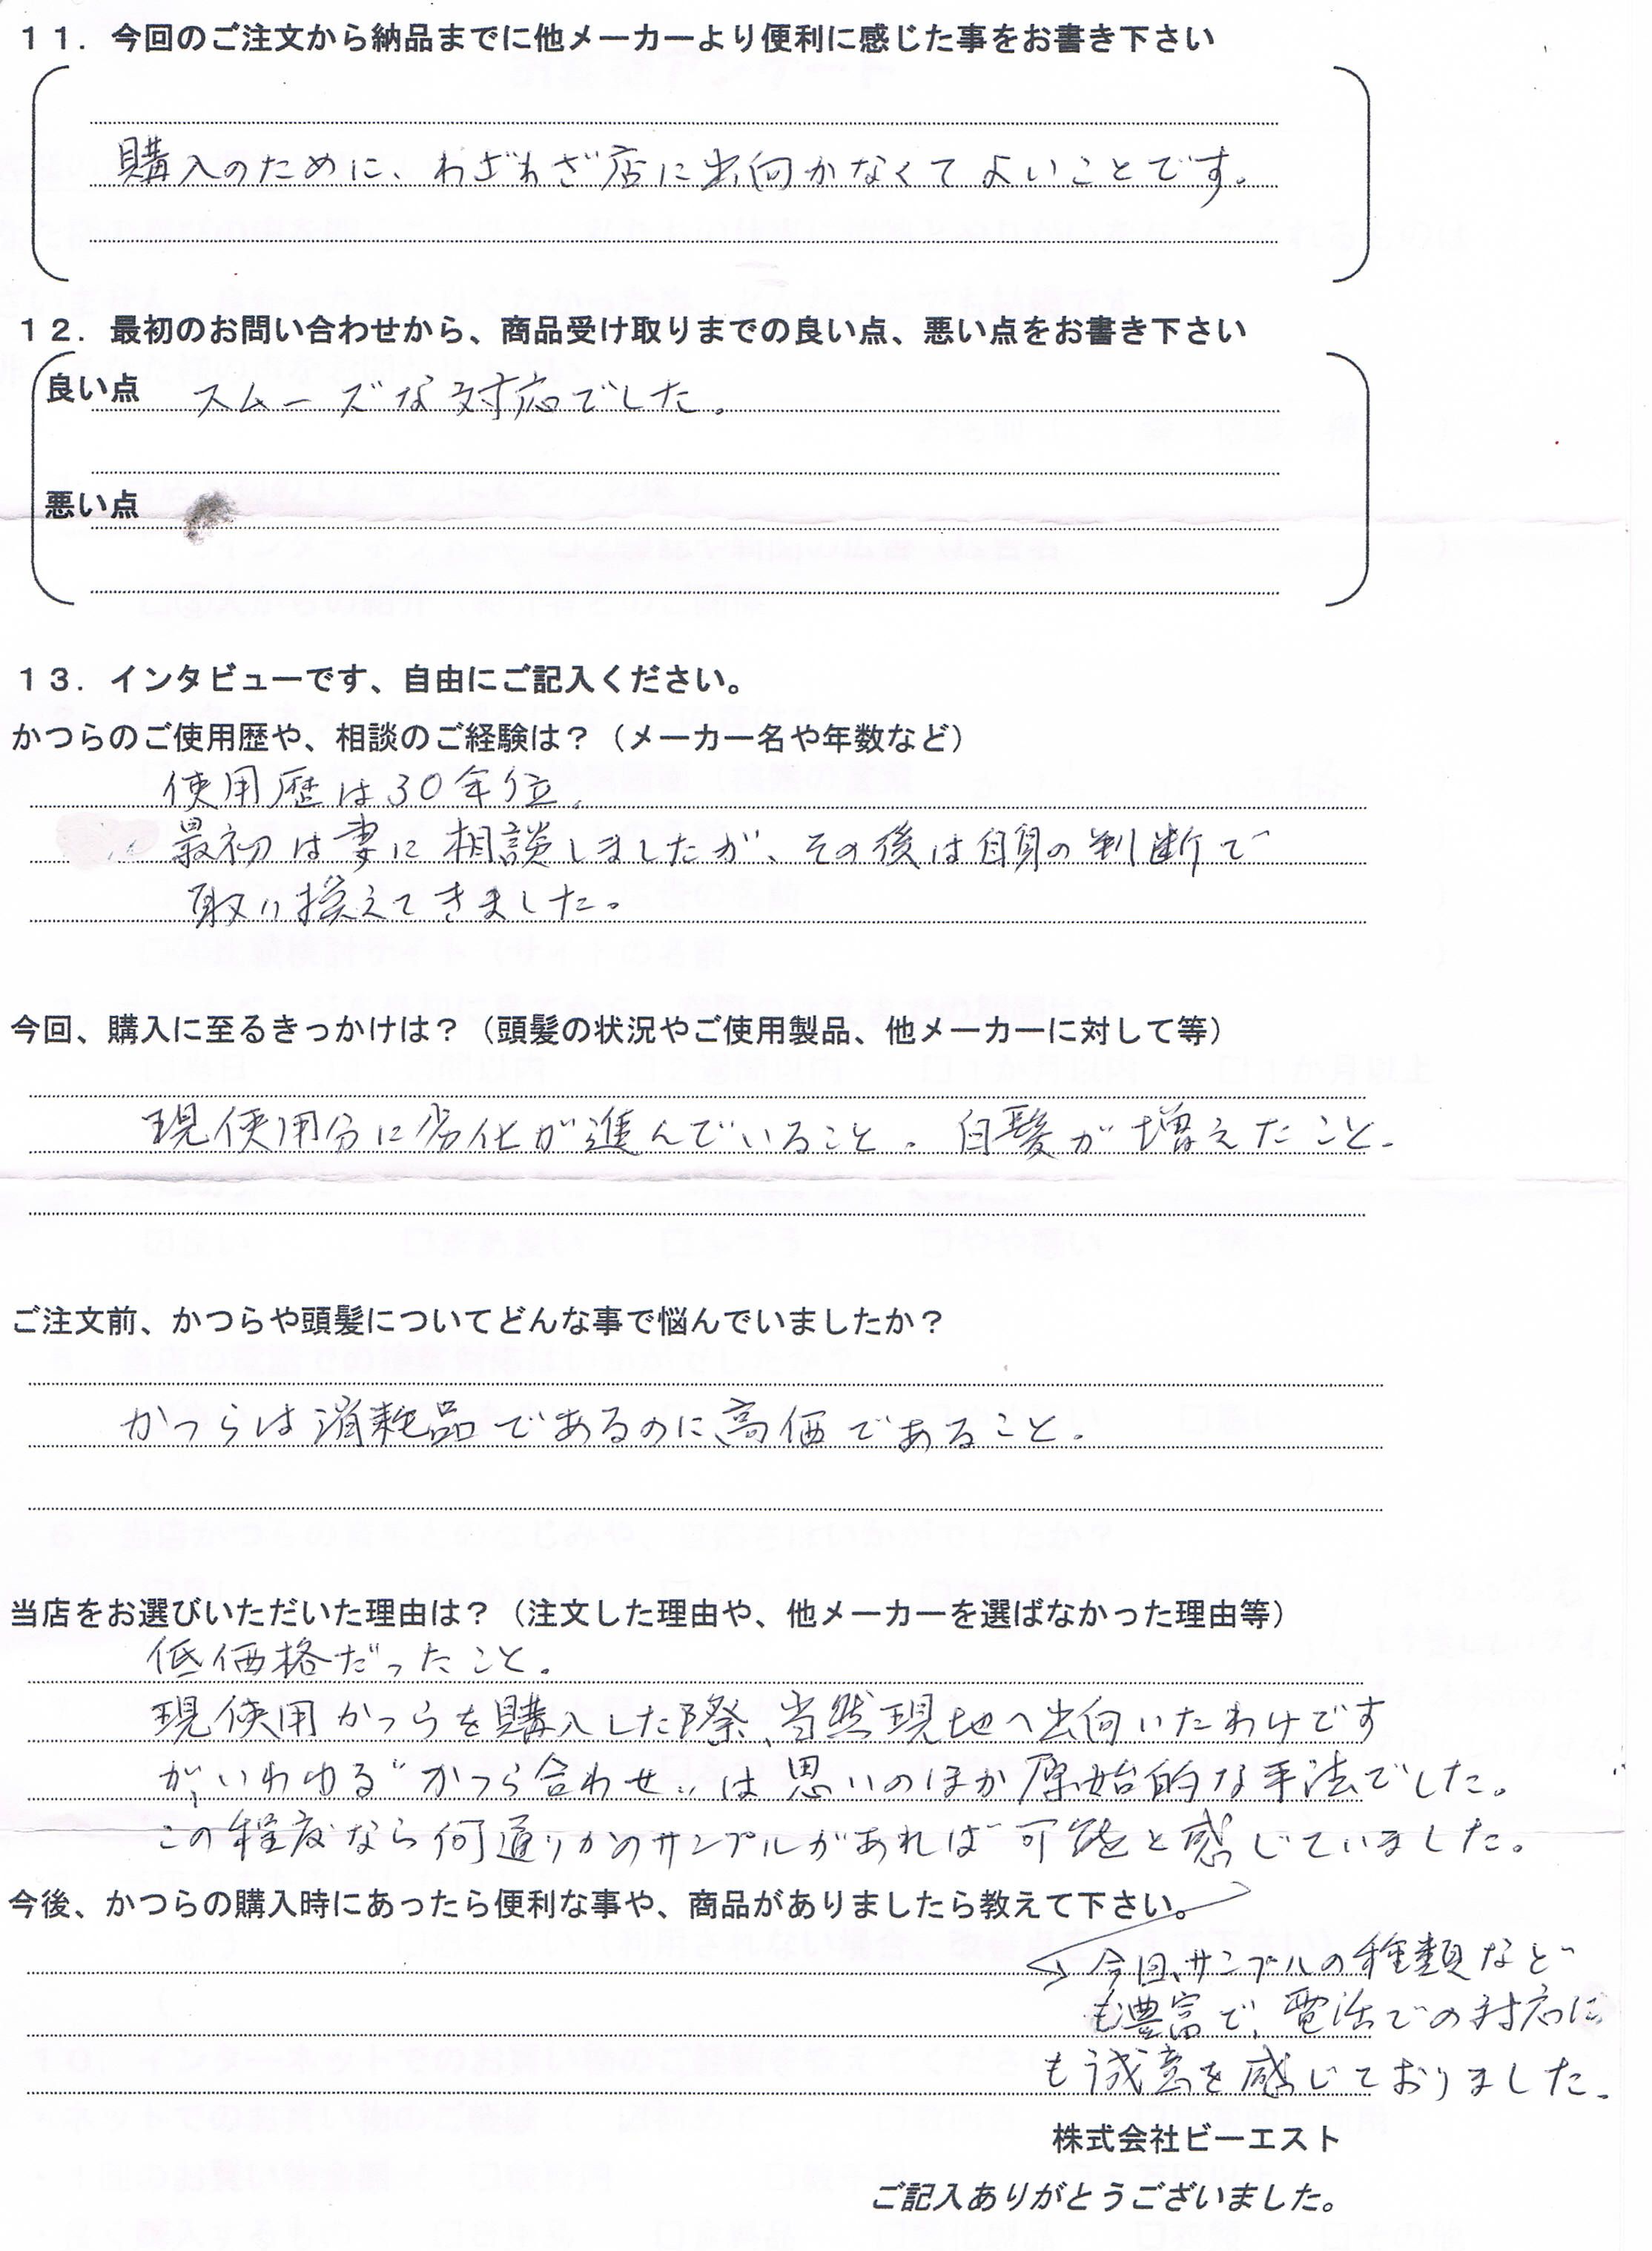 11．今回のご注文から納品までに他メーカーより便利に感じた事をお書き下さい
購入のために、わざわざ店に出向かなくてよいことです。
12．最初のお問い合わせから、商品受け取りまでの良い点、悪い点をお書き下さい
良い点 スムーズな対応でした。
悪い点
13．インタビューです、自由にご記入ください。
かつらのご使用歴や、相談のご経験は？（メーカー名や年数など）
使用歴は30年位。
最初は妻に相談しましたが、その後は自身の判断で
取り換えてきました。
今回、購入に至るきっかけは？（頭髪の状況やご使用製品、他メーカーに対して等）
現使用分に劣化が進んでいること。白髪が増えたこと。
ご注文前、かつらや頭髪についてどんな事で悩んでいましたか？
かつらは消耗品であるのに高価であること。
当店をお選びいただいた理由は？（注文した理由や、他メーカーを選ばなかった理由等）
低価格だったこと。
現使用かつらを購入した際、当然現地へ出向いたわけです
が、いわゆる〝かつら合わせ〟は思いのほか原始的な手法でした。
この程度なら何通りかのサンプルがあれば可能と感じていました。
今後、かつらの購入時にあったら便利な事や、商品がありましたら教えて下さい。
今回、サンプルの種類など
も豊富で、電話での対応に
も誠意を感じておりました。
株式会社ビーエスト
ご記入ありがとうございました。